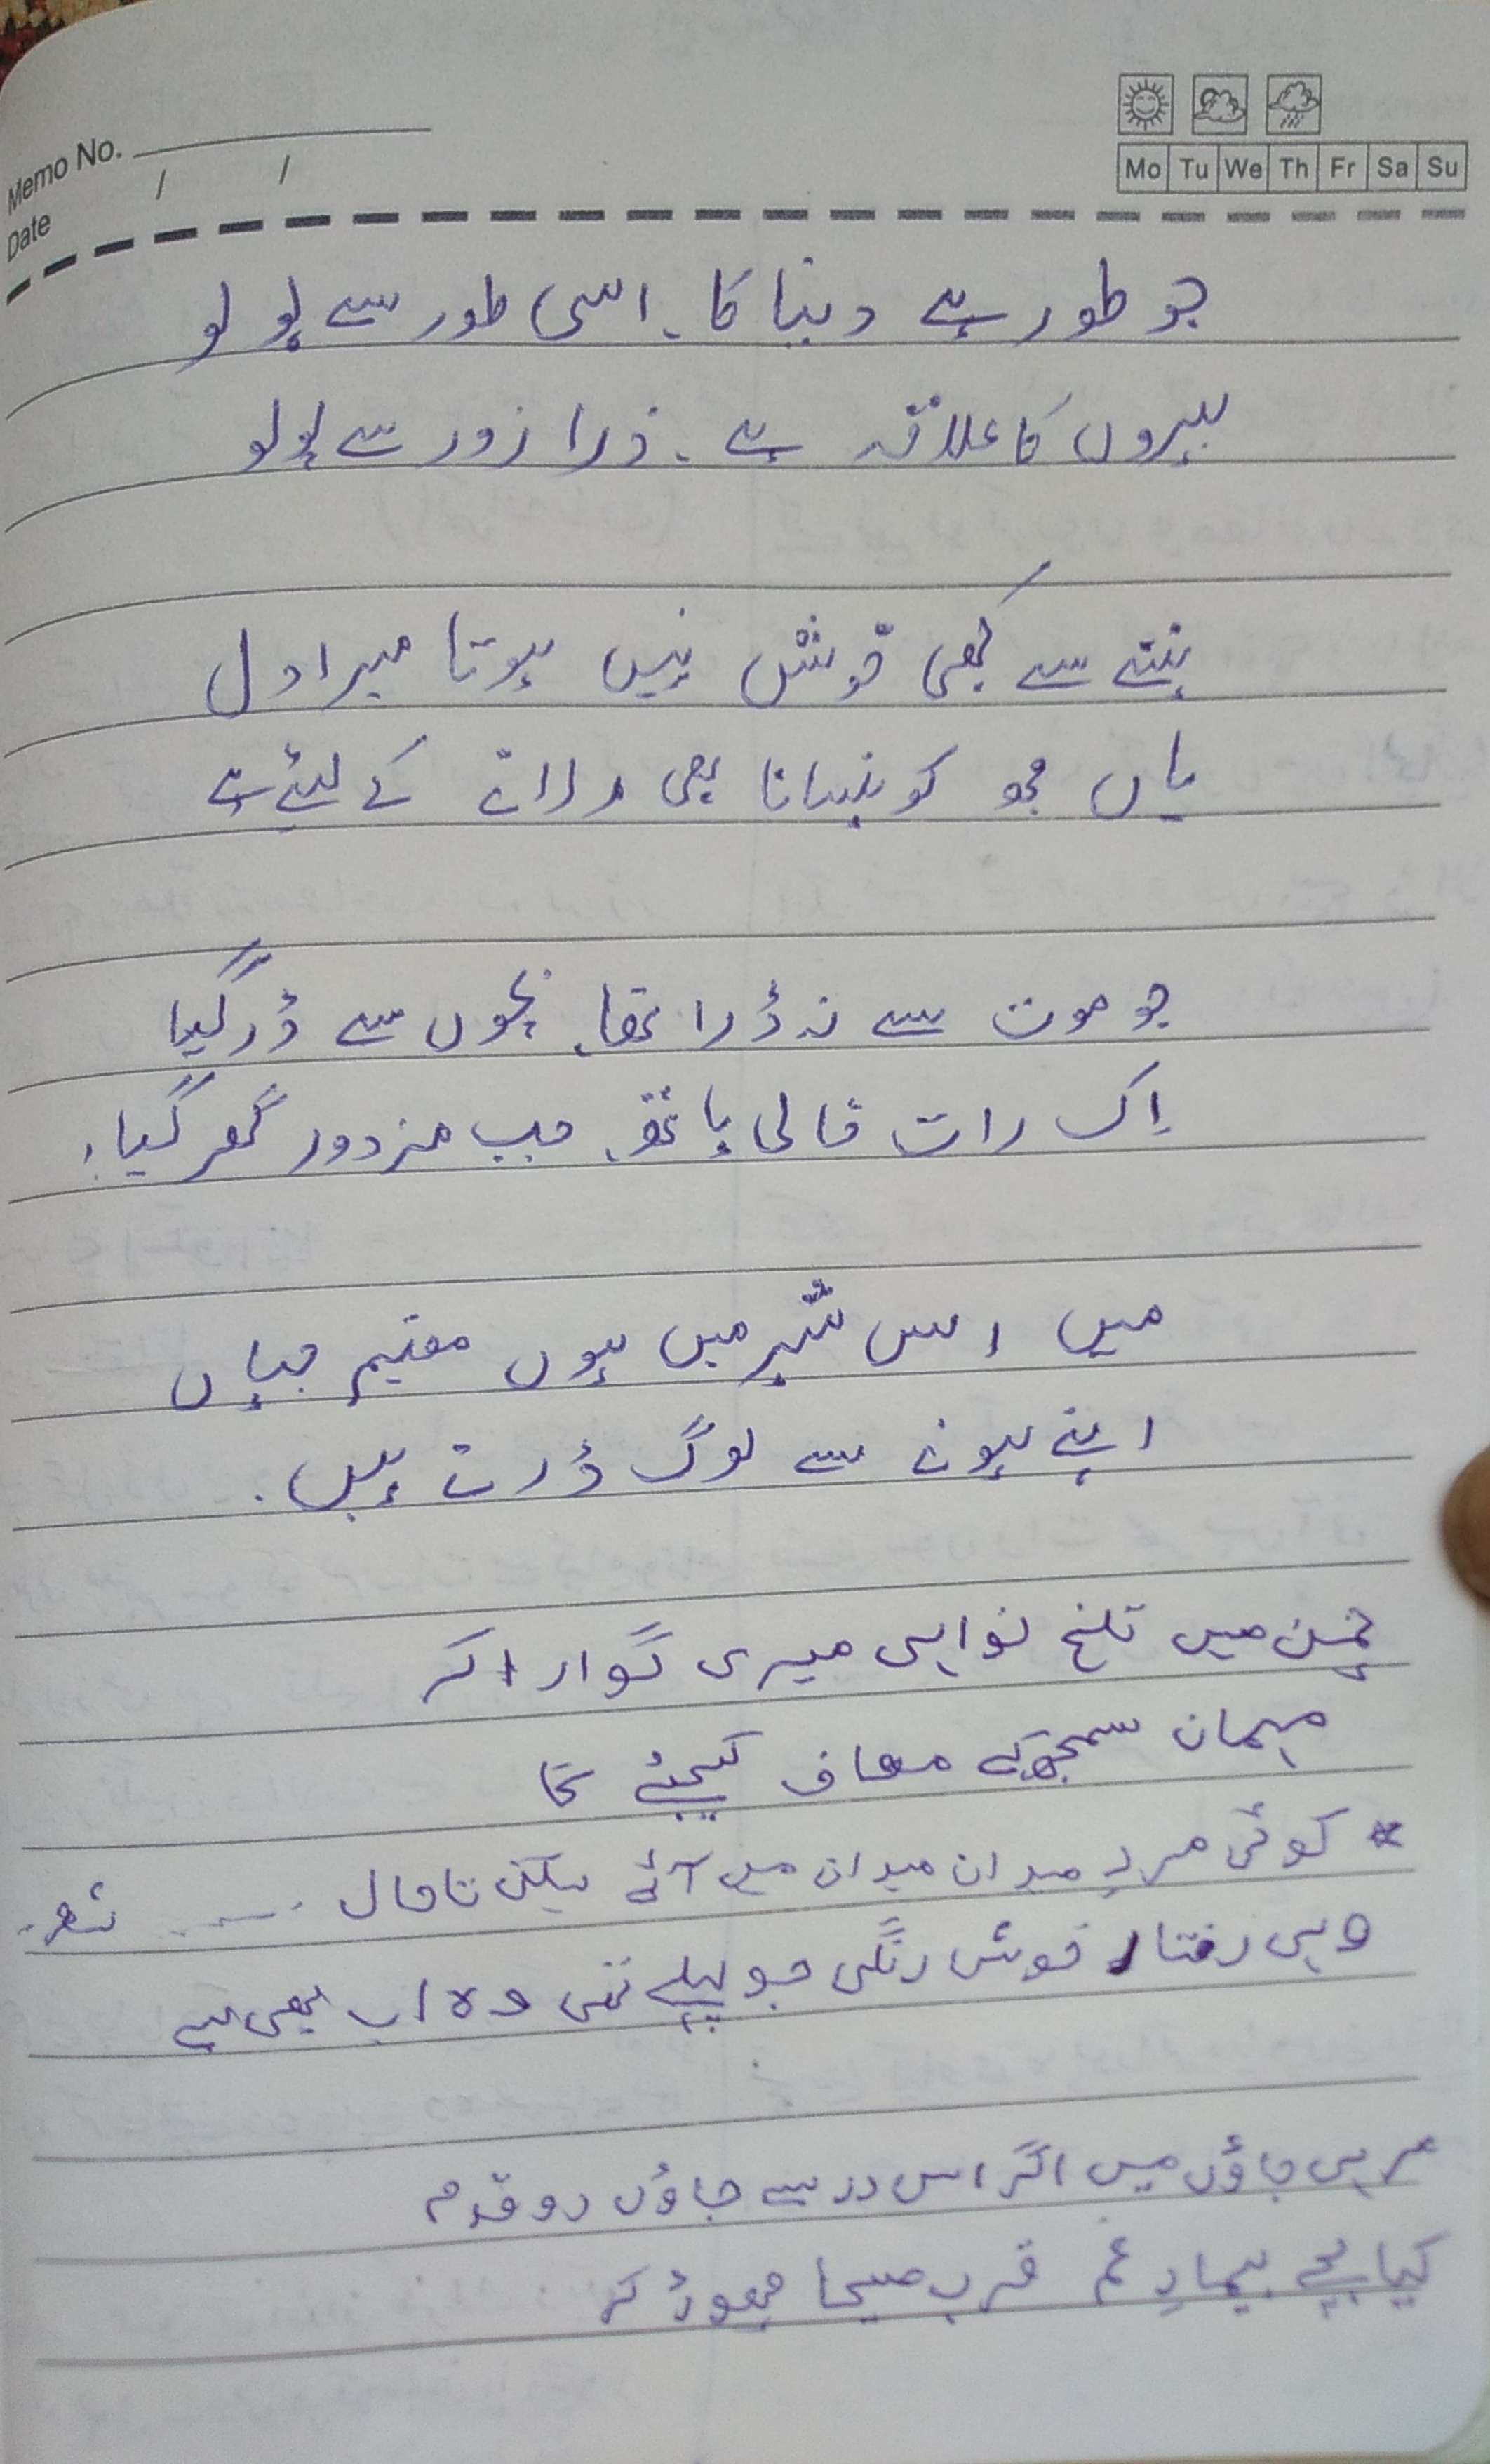 Memo No.
Date / /
Mo Tu We Th Fr Sa Su
جو طور ہے دنیا کا۔ اسی طور سے بولو
بہروں کا علاقہ ہے۔ ذرا زور سے بولو
ہنسنے سے کبھی خوش نہیں ہوتا میرا دل
یاں مجھ کو ہنسانا بھی رلانے کے لیئے ہے
جو موت سے نہ ڈرا تھا۔ بچوں سے ڈر گیا
اِک رات خالی ہاتھ۔ جب مزدور گھر گیا۔
میں اس شہر میں ہوں مقیم جہاں
اپنے ہونے سے لوگ ڈرتے ہیں۔
چمن میں تلخ نوایی میری گوارا کر
مہمان سمجھ کے معاف کیجئے گا
* کوئی مردِ میدان میدان میں آئے لیکن تاحال ..... شعر۔
وہی رفتار خوش رنگی جو پہلے تھی وہ اب بھی ہے
مر ہی جاؤں میں اگر اس در سے جاؤں دو قدم
کیا بچے بیمارِ غم قربِ مسیحا چھوڑ کر